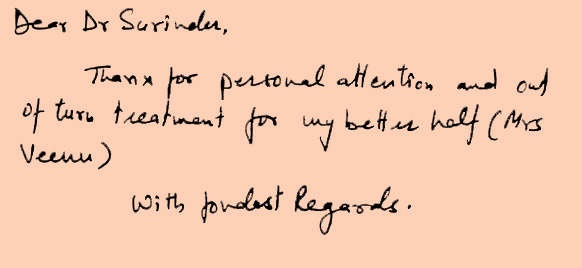 Dear Dr Surinder,
Thanx for personal attention and out
of turn treatment for my better half (Mrs
Veenu)
With fondest Regards.